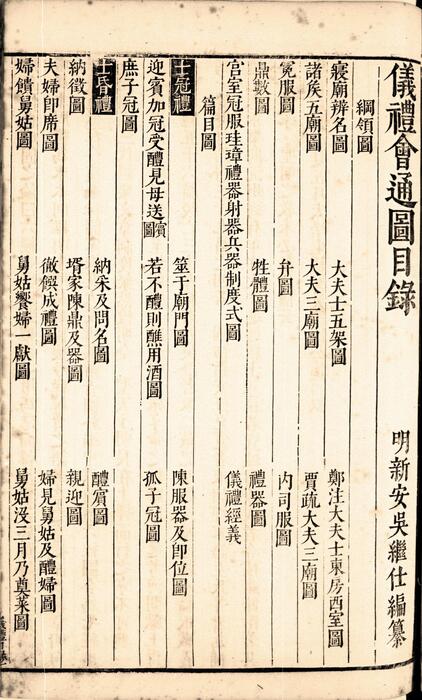 儀禮會通圖目錄 明新安吳繼仕編纂
綱領圖
寢廟辨名圖 大夫士五架圖 鄭注大夫士東房西室圖
諸矦五廟圖 大夫三廟圖 賈疏大夫三廟圖
冕服圖 弁圖 內司服圖
鼎數圖 牲體圖 禮器圖
宮室冠服珪璋禮器射器兵器制度式圖 儀禮經義
篇目圖
士冠禮 筮于廟門圖 陳服器及卽位圖
迎賓加冠受醴見母送賓圖 若不醴則醮用酒圖 孤子冠圖
庶子冠圖
士昏禮 納采及問名圖 醴賓圖
納徵圖 壻家陳鼎及器圖 親迎圖
夫婦卽席圖 徹餕成禮圖 婦見舅姑及醴婦圖
婦饋舅姑圖 舅姑饗婦一獻圖 舅姑沒三月乃奠菜圖